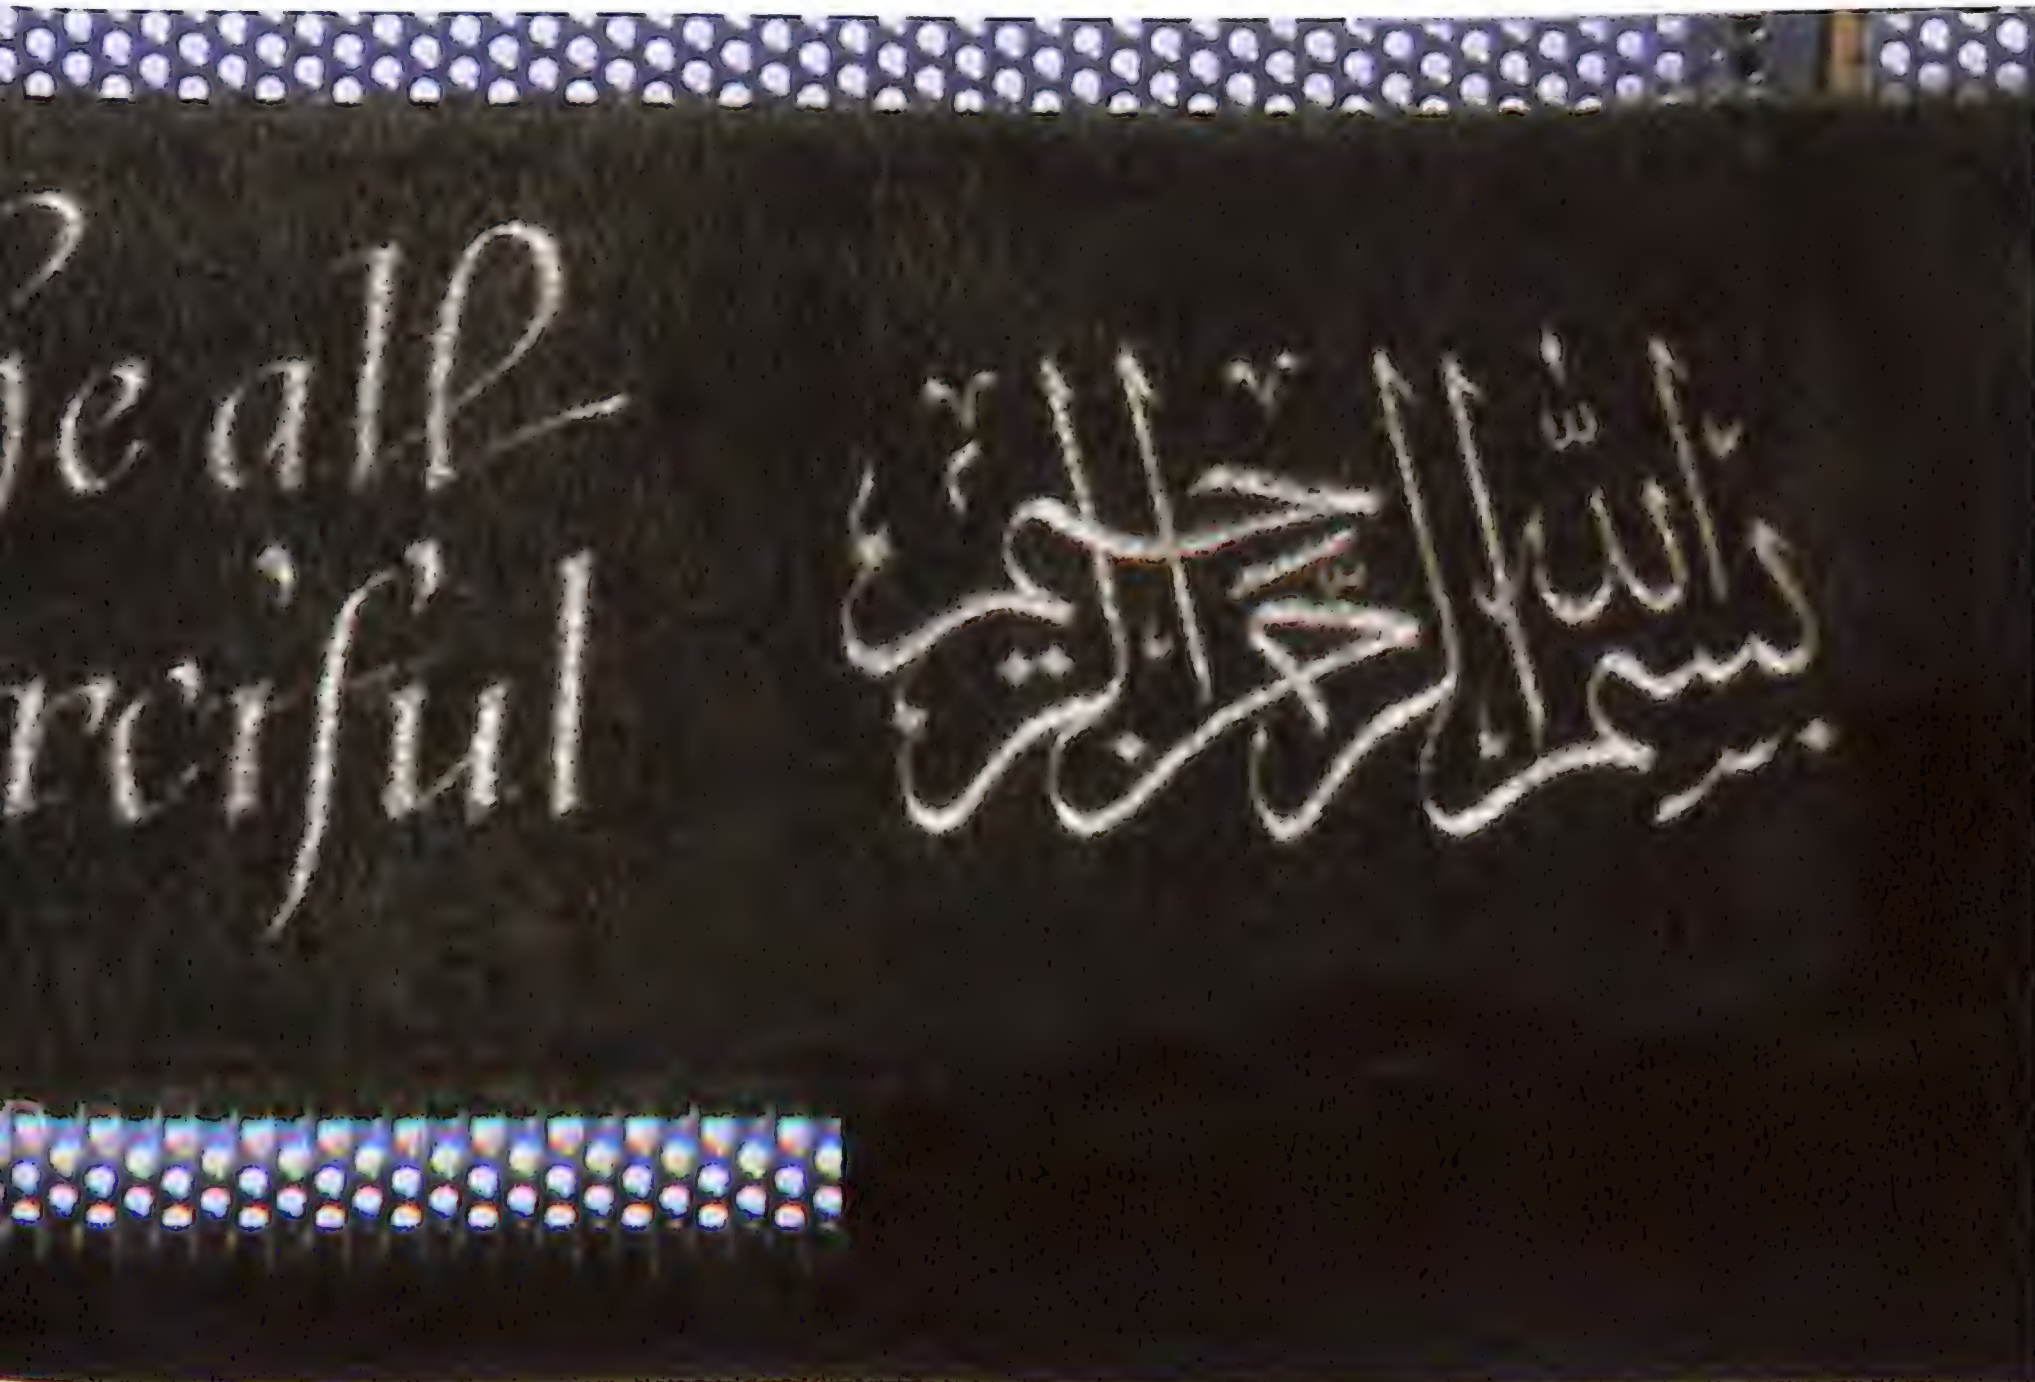 he all-
rciful
بسم الله الرحمن الرحيم